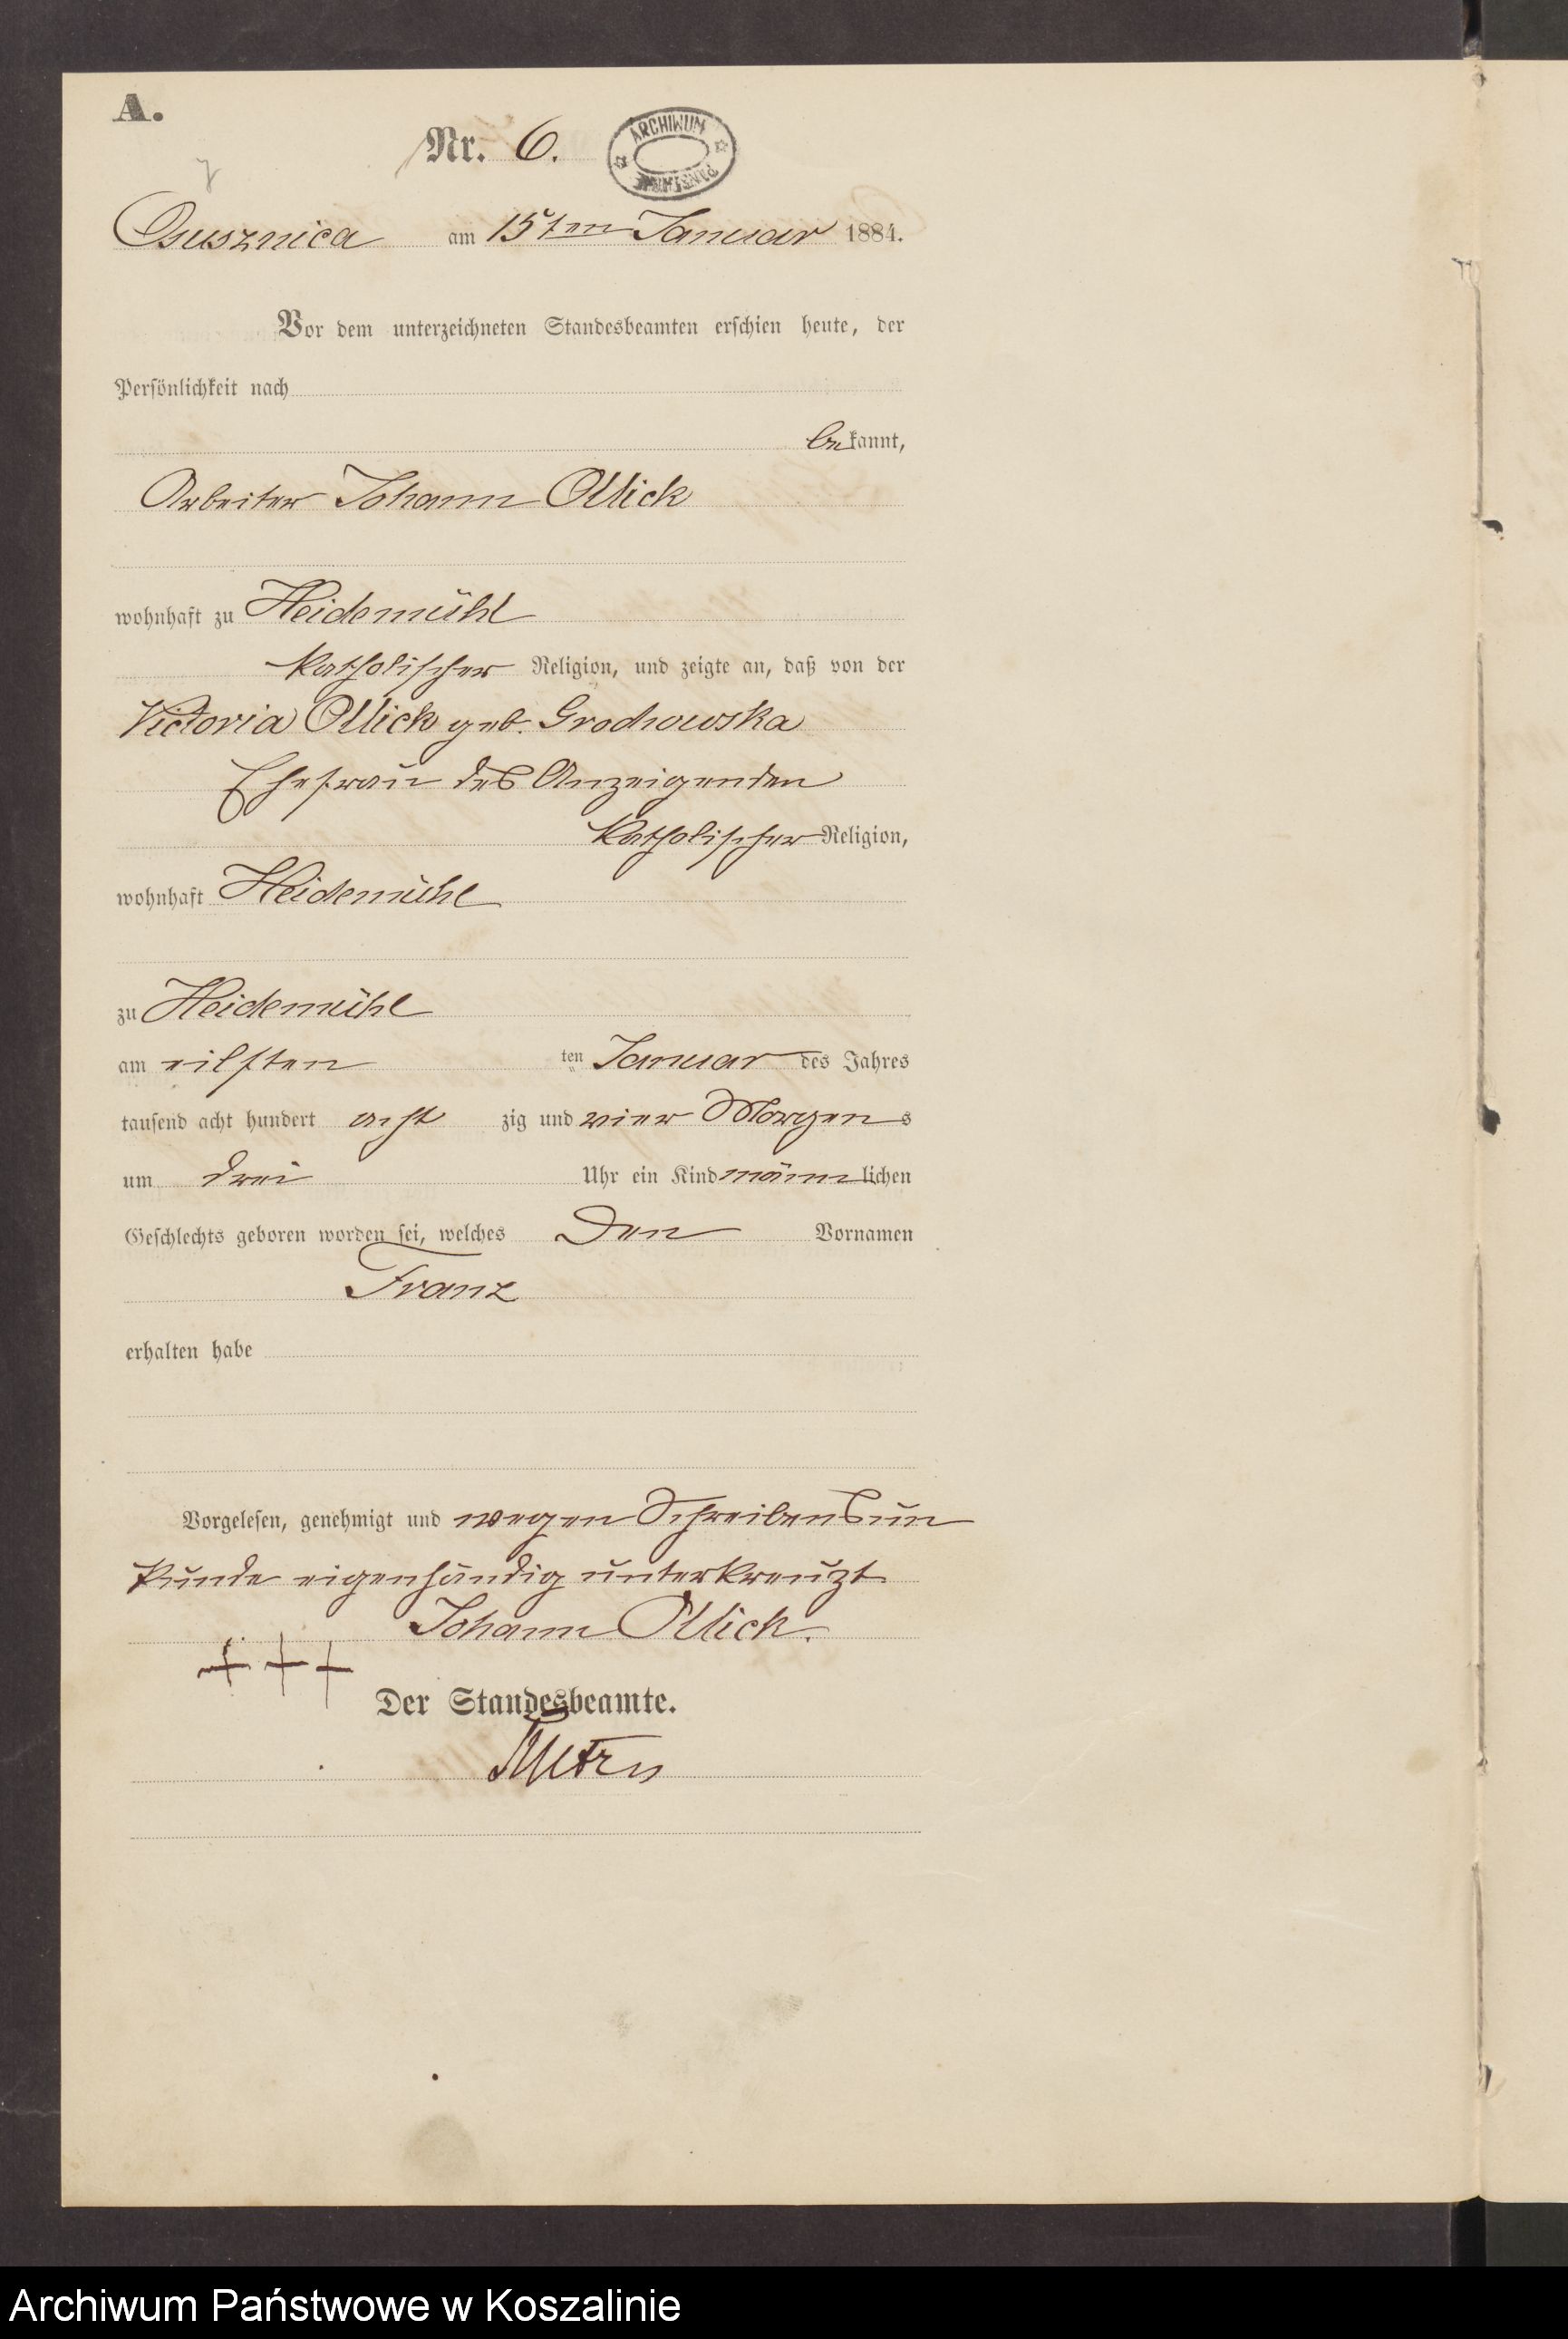 A.
Nr. 6.
ARCHIWUM PAŃSTWOWE
Osusznica am 15ten Januar 1884.
Vor dem unterzeichneten Standesbeamten erschien heute, der
Persönlichkeit nach
bekannt,
Arbeiter Johann Ollick
wohnhaft zu Heidemühl
katholischer Religion, und zeigte an, daß von der
Victoria Ollick geb. Grochowska
Ehefrau des Anzeigenden
katholischer Religion,
wohnhaft Heidemühl
zu Heidemühl
am eilften ten Januar des Jahres
tausend acht hundert acht zig und vier Morgens
um drei Uhr ein Kind männlichen
Geschlechts geboren worden sei, welches den Vornamen
Franz
erhalten habe
Vorgelesen, genehmigt und wegen Schreibensun
kunde eigenhändig unterkreuzt
Johann Ollick.
+++
Der Standesbeamte.
Archiwum Państwowe w Koszalinie